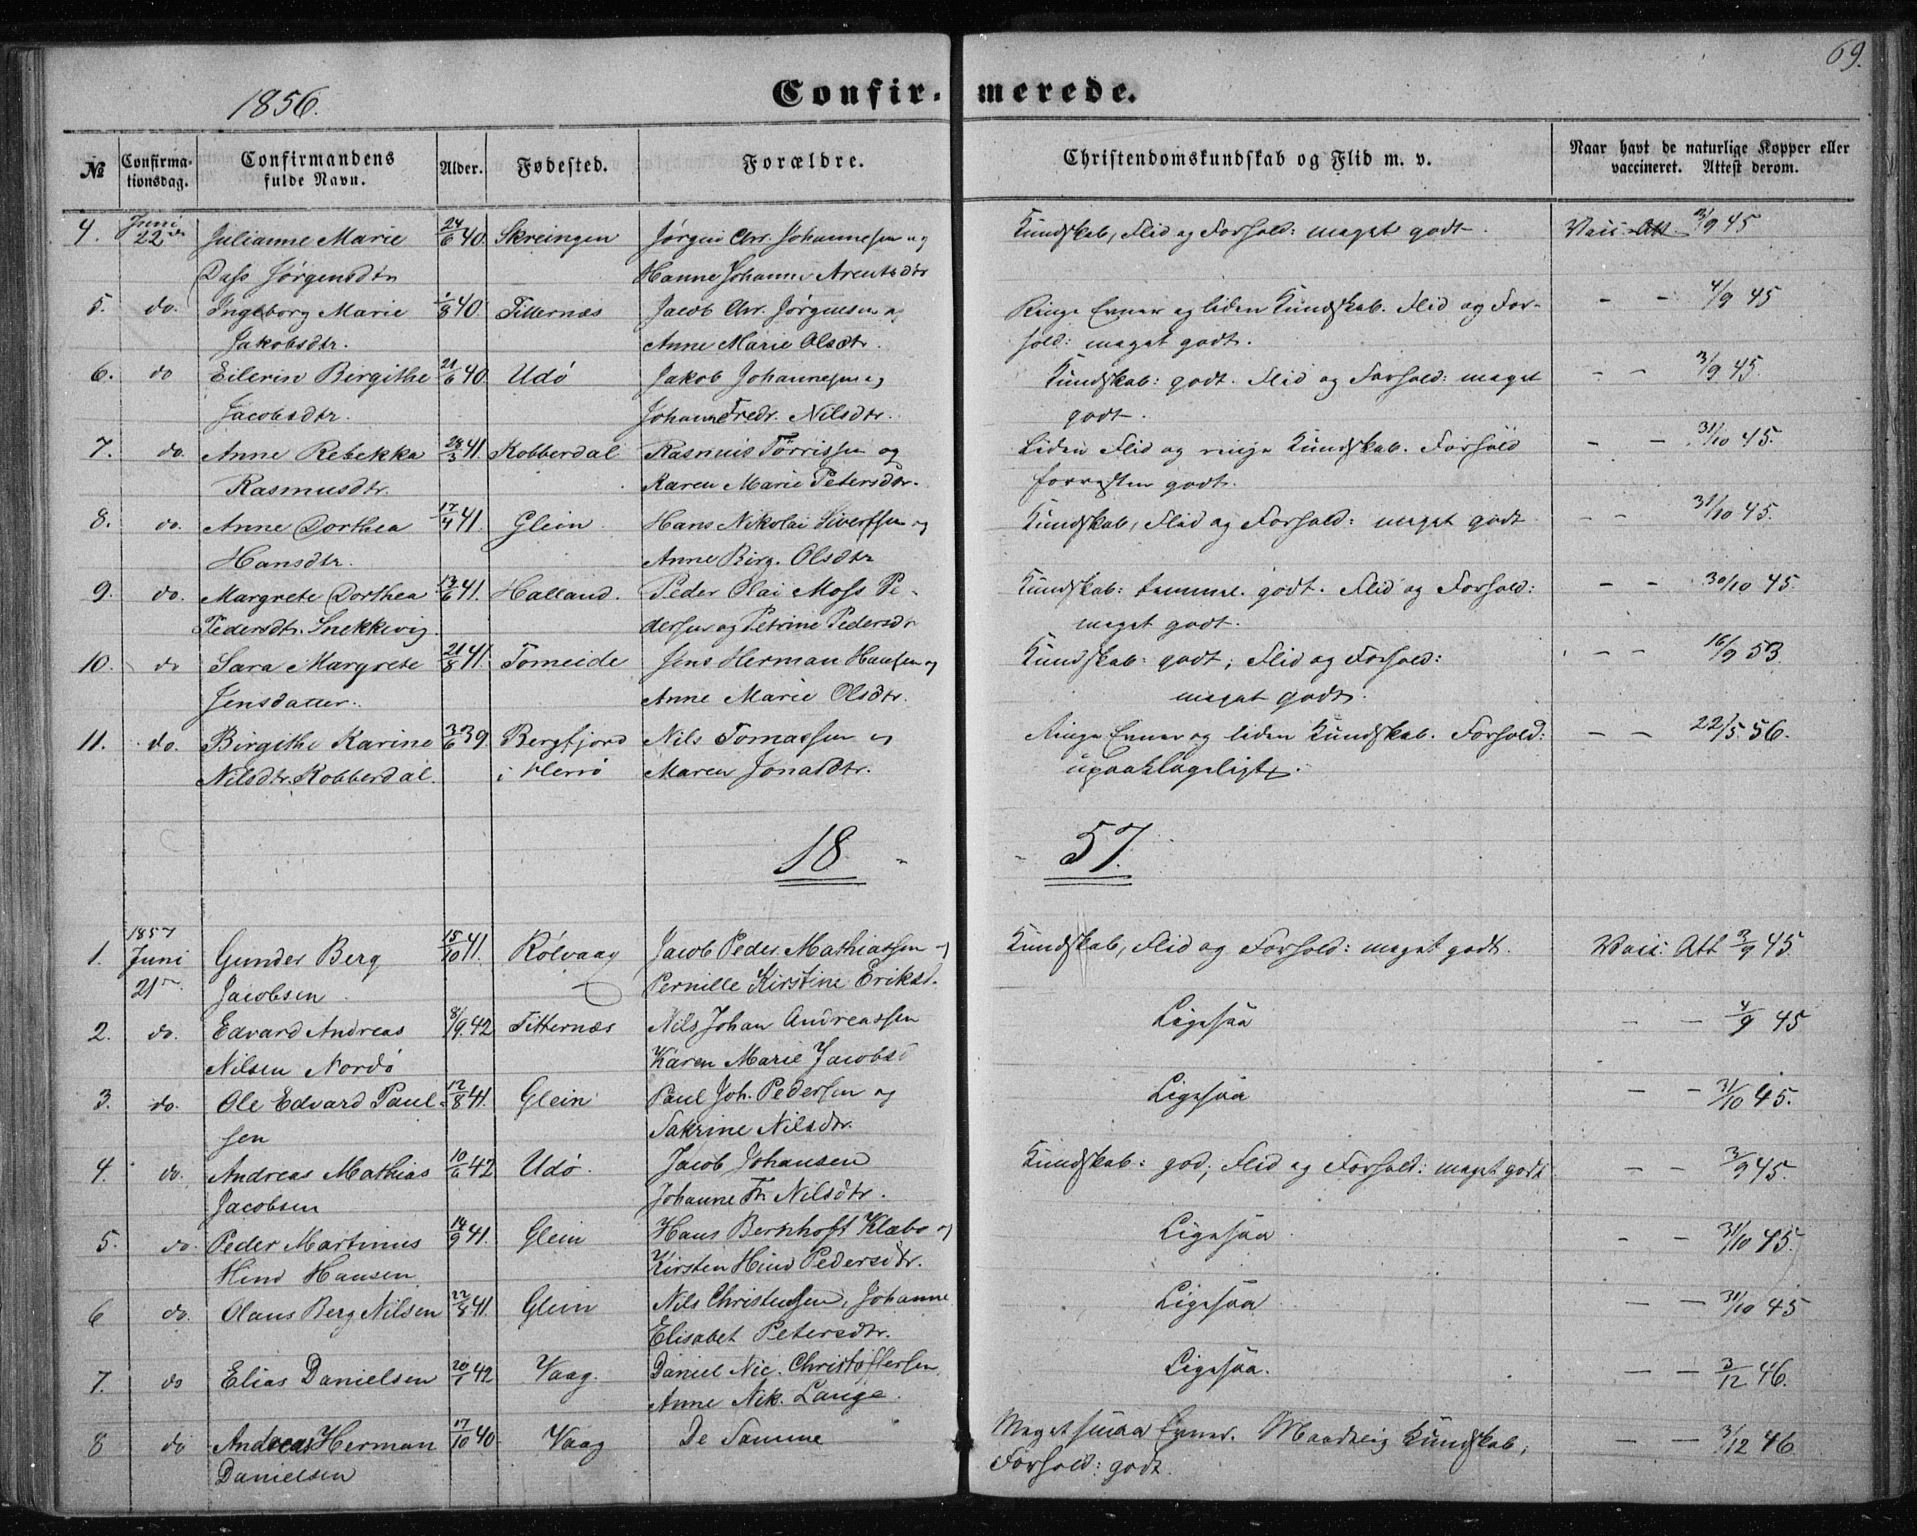 69.
1856.
Confir- merede.
№ Confirma-tionsdag. Confirmandens fulde Navn. Alder. Fødested. Forældre. Christendomskundskab og Flid m. v. Naar havt de naturlige Kopper eller vaccineret. Attest derom.
4. Juni 22 Julianne Marie 24/6 40 Skreingen Jørgen Chr. Johannesen og Kundskab, Flid og Forhold: meget godt. Vacc. Att. 3/9 45
Dass Jørgensdtr Hanne Johanne Arentsdtr
5. do. Ingeborg Marie 1/8 40 Titternæs Jacob Chr. Jørgensen og Ringe Evner og liden Kundskab. Flid og For- - - 4/9 45
Jakobsdtr. Anne Marie Olsdtr. hold: meget godt.
6. do Eilerin Bergithe 21/6 40 Udö Jakob Johannesen og Kundskab: godt. Flid og Forhold: meget - - 3/9 45.
Jacobsdtr. Johanne Fredr. Nilsdtr. godt.
7. do. Anne Rebekka 28/3 41. Kobberdal Rasmus Tørrissen og Liden Flid og ringe Kundskab. Forhold - - 31/10 45.
Rasmusdtr. Karen Marie Petersdtr. forresten godt.
8. do. Anne Dorthea 17/4 41. Glein Hans Nikolai Sivertsen og Kundskab, Flid og Forhold: meget godt - - 31/10 45.
Hansdtr. Anne Birg. Olsdtr
9. do. Margrete Dorthea 13/6 41. Halland. Peder Olai Moss Pe- Kundskab: temmel. godt. Flid og Forhold: - - 30/10 45.
Pedersdtr. Snekkevig dersen og Petrine Pedersdr meget godt.
10. do Sara Margrete 21/8 41. Tomeide Jens Herman Hansen og Kundskab: godt; Flid og Forhold: - - 16/9 53.
Jensdatter. Anne Marie Olsdtr. meget godt.
11. do. Birgithe Karine 3/6 39. Bergfjord Nils Tomassen og Ringe Evner og liden Kundskab. Forhold: - - 22/5 56.
Nilsdtr. Kobberdal. i Herrö Maren Jonasdtr. upaaklageligt.
18 57.
1. 1857 Juni 21 Gunder Berg 15/10 41. Rölvaag Jacob Peder Mathiassen og Kundskab, Flid og Forhold: meget godt. Vacc. Att 3/9 45.
Jacobsen Pernille Kirstine Eriksd.
2. do. Edvard Andreas 8/9 42 Titternæs Nils Johan Andreassen Ligesaa - - 4/9 45
Nilsen Nordö Karen Marie Jacobsd
3. do. Ole Edvard Paul- 12/8 41. Glein Paul Joh. Pedersen og Ligesaa - - 31/10 45.
sen Sakrine Nilsdtr.
4. do. Andreas Mathias 10/6 42 Udö. Jacob Johansen Kundskab: god; Flid og Forhold: meget godt - - 3/9 45.
Jacobsen Johanne Fr. Nilsdtr.
5. do. Peder Martinus 14/9 41. Glein Hans Bernhoft Klæbo og Ligesaa - - 31/10 45.
Hind Hansen Kirsten Hind Pedersdtr.
6 do. Olaus Berg Nilsen 22/8 41. Glein Nils Christensen, Johanne Ligesaa - - 31/10 45
Elisabet Petersdtr.
7. do Elias Danielsen 20/1 42 Vaag. Daniel Nic. Christoffersen Ligesaa. - - 3/12 46.
Anne Nik. Lange.
8 do Andreas Herman 17/10 40 Vaag De Samme Meget smaa Evner. Maadelig Kundskab; - - 3/12 46
Danielsen Forhold: godt.